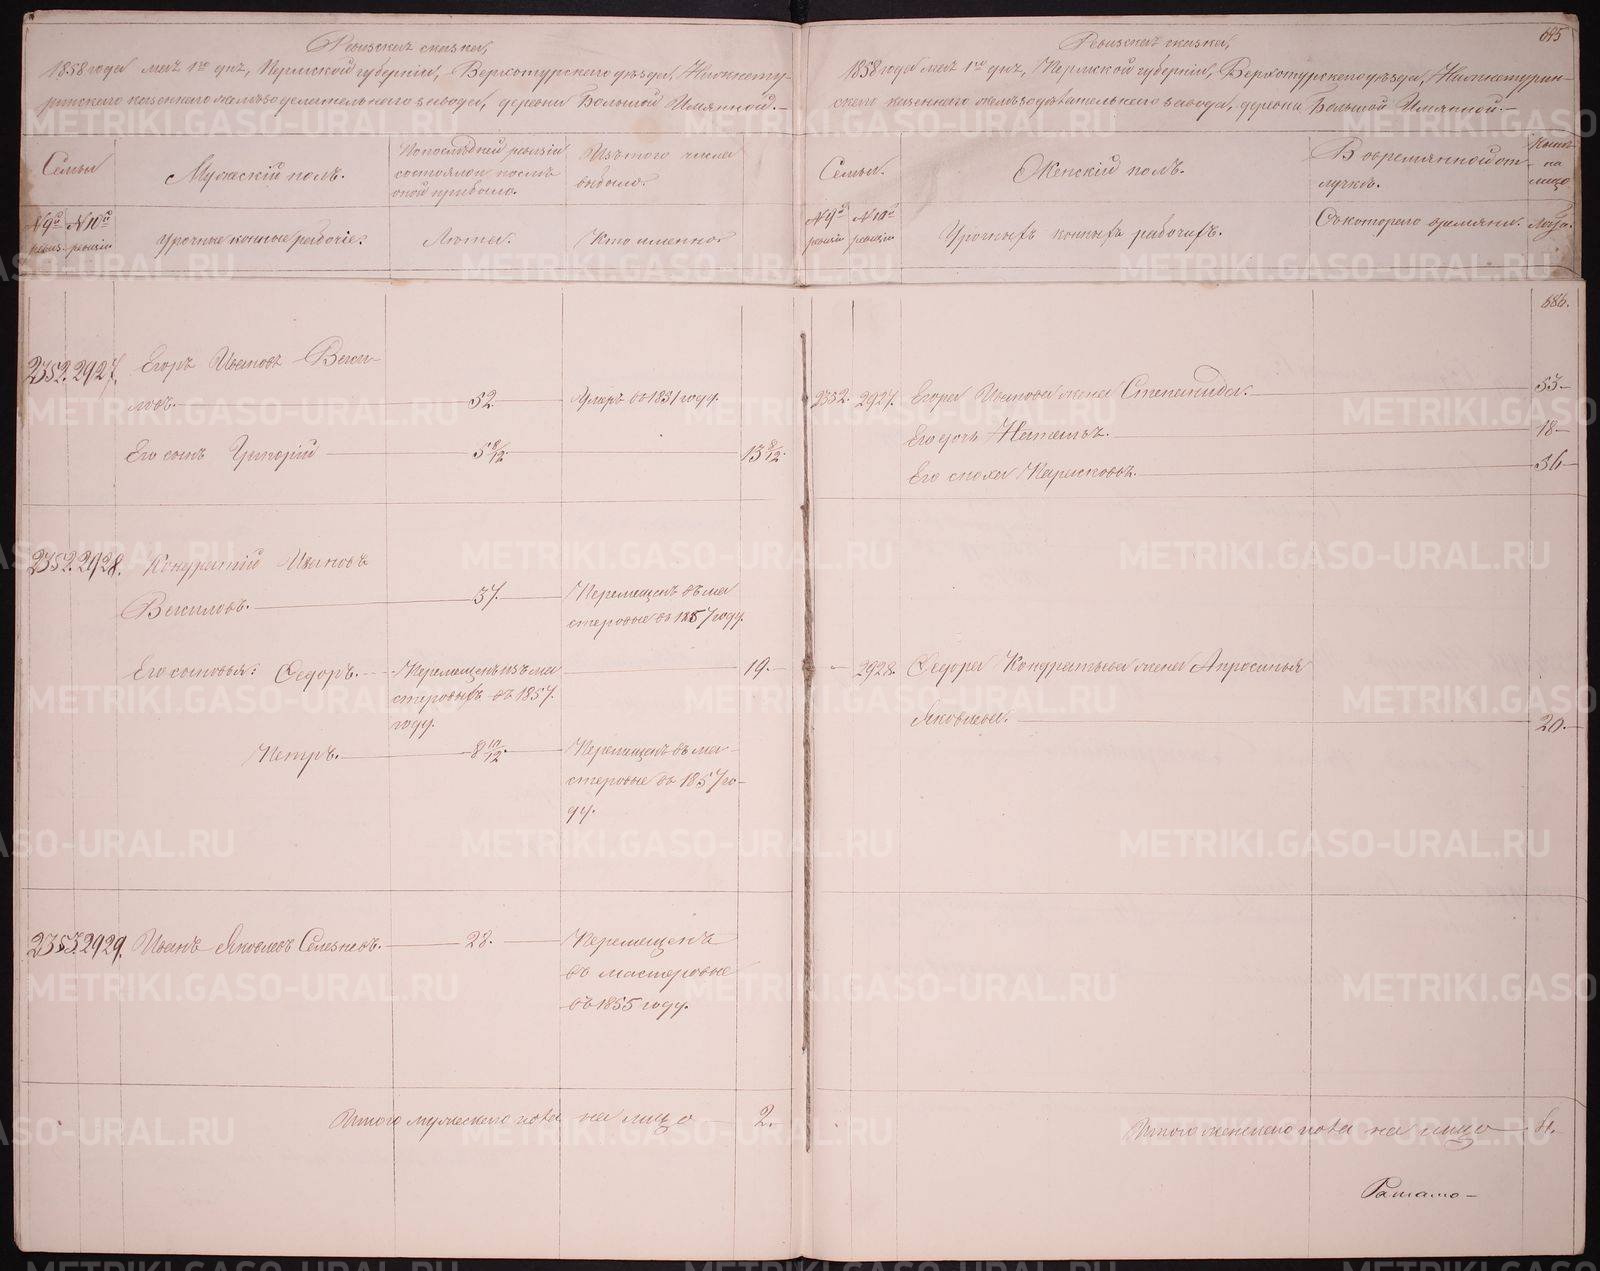 Ревизская сказка,
1858 года мая 1го дня, Пермской губерніи, Верхотурскаго уѣзда, Нижнету-
ринскаго казеннаго желѣзодѣлательнаго завода, деревни Большой Имянной.
Семьи
Мужескій полъ.
По последней ревизіи
состояло и после
оной прибыло.
Изъ того числа
выбыло.
№ 9й ревиз.
№ 10й ревизіи
Урочные конные рабочіе.
Лѣта.
Кто именно
2352. 2927. Егоръ Ивановъ Ваги-
ловъ. 52. Умеръ въ 1851 году.
Его сынъ Григорій 5 8/12. 13 8/12.
2352. 2928. Кондратій Ивановъ
Вагиловъ. 37. Перемещенъ въ ма
стеровые въ 1857 году.
Его сыновья: Федоръ. Перемещенъ изъ ма 19.
стеровыхъ въ 1857.
году.
Петръ. 8 10/12. Перемещенъ въ ма-
стеровые въ 1857 го-
ду.
2353. 2929. Иванъ Яковлевъ Селезневъ. 28. Перемещенъ
въ мастеровые
въ 1855 году.
Итого мужескаго пола на лицо 2.
695
Ревизская сказка,
1858 года мая 1го дня, Пермской губерніи, Верхотурскаго уѣзда, Нижнетурин-
скаго казеннаго желѣзодѣлательнаго завода, деревни Большой Имянной.
Семьи.
Женскій полъ.
В овремянной от
лучкѣ.
на
лицо
№ 9й ревизіи
№ 10й ревизіи
Урочныхъ конныхъ рабочихъ.
Съ котораго времяни.
Лѣта.
686.
2352. 2927. Егора Иванова жена Степанида. 53
Его дочь Наталья. 18
Его сноха 36
2928. Федора Кондратьева жена Апросинья
Яковлева. 20.
Итого женскаго пола на лицо 4.